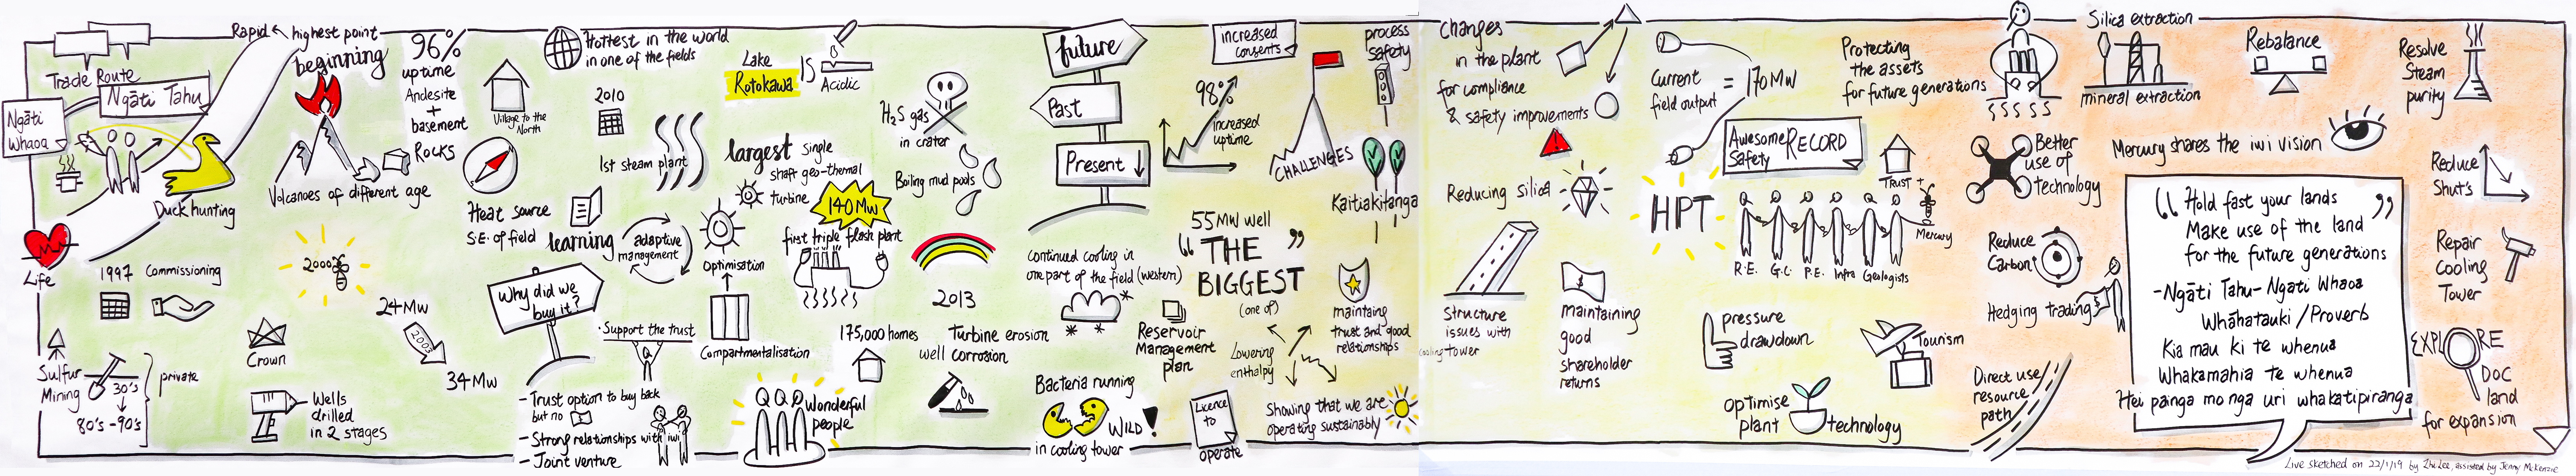 Rapid
highest point
beginning
Trade Route
Ngāti Tahu
Ngāti
Whaoa
Duck hunting
Life
1997 Commissioning
Sulfur
Mining
30's
80's - 90's
private
96%
uptime
Andesite
+
basement
Rocks
Volcanoes of different age
2000
24 MW
2003
34 MW
Crown
Wells
drilled
in 2 stages
Village to the
North
Heat source
S.E. of field
Hottest in the world
in one of the fields
2010
1st steam plant
learning
adaptive
management
Why did we
buy it?
- Trust option to buy back
but no
- Strong relationships with iwi
- Joint venture
· Support the trust
Lake
Rotokawa
IS
Acidic
largest single
shaft geo-thermal
turbine
140 MW
first triple flash plant
Optimisation
Compartmentalisation
175,000 homes
Wonderful
people
H2S gas
in crater
Boiling mud pools
2013
Turbine erosion
well corrosion
future
Past
Present
continued cooling in
one part of the field (western)
Bacteria running
WILD!
in cooling tower
Reservoir
Management
plan
Licence
to
operate
increased
consents
98%
increased
uptime
55MW well
"THE"
BIGGEST
(one of)
Lowering
enthalpy
Showing that we are
operating sustainably
CHALLENGES
process
safety
Kaitiakitanga
maintaing
trust and good
relationships
Changes
in the plant
for compliance
& safety improvements
Reducing silica
Structure
issues with
cooling tower
maintaining
good
shareholder
returns
Current
field output
= 170 MW
Awesome RECORD
Safety
HPT
TRUST +
Mercury
R.E. G.C. P.E. Infra Geologists
pressure
drawdown
optimise
plant
technology
Tourism
Protecting
the assets
for future generations
Better
use of
technology
Reduce
Carbon
Hedging trading
$
Direct use/
resource
path
Silica extraction
mineral extraction
Rebalance
Mercury shares the iwi vision
"Hold fast your lands"
Make use of the land
for the future generations
- Ngāti Tahu - Ngāti Whaoa
Whāhatauki / Proverb
Kia mau ki te whenua
Whakamahia te whenua
Hei painga mo nga uri whakatipiranga
Resolve
Steam
purity
Reduce
Shut's
Repair
Cooling
Tower
EXPLORE
DOC
land
for expansion
Live sketched on 22/1/19 by Zhi Lee, assisted by Jenny McKenzie